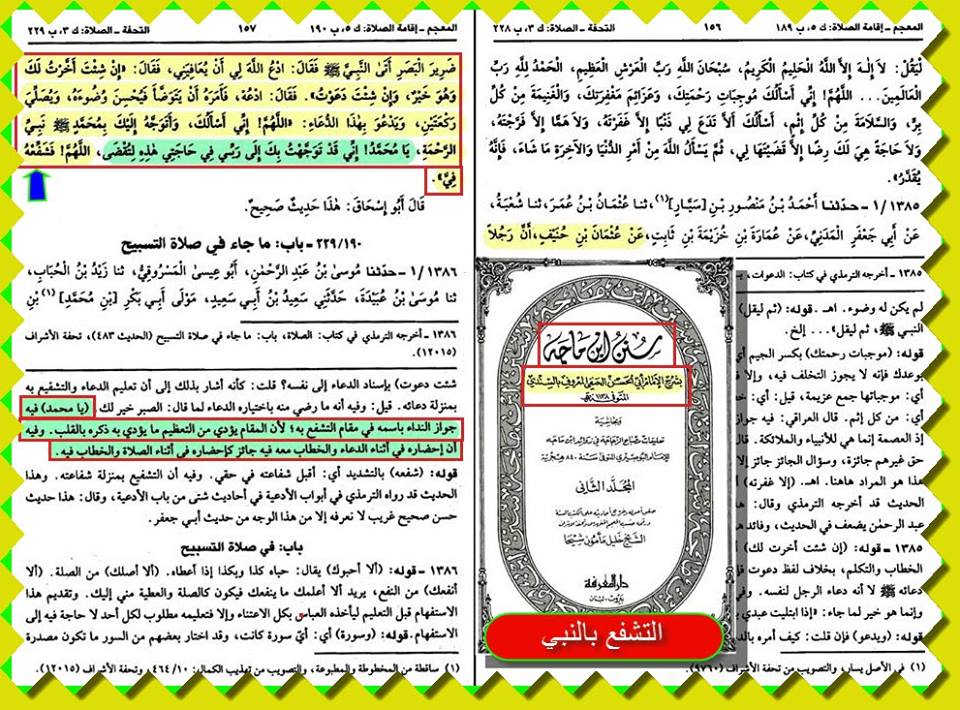 المعجم ـ إقامة الصلاة: ك ٥، ب ١٨٩ ١٥٦ التحفة ـ الصلاة: ك ٣، ب ٢٢٨
لْيَقُلْ: لَا إِلٰهَ إِلاَّ اللَّهُ الْحَلِيمُ الْكَرِيمُ، سُبْحَانَ اللَّهِ رَبِّ الْعَرْشِ الْعَظِيمِ، الْحَمْدُ لِلَّهِ رَبِّ
الْعَالَمِينَ... اللَّهُمَّ! إِنِّي أَسْأَلُكَ مُوجِبَاتِ رَحْمَتِكَ، وَعَزَائِمَ مَغْفِرَتِكَ، وَالْغَنِيمَةَ مِنْ كُلِّ
بِرٍّ، وَالسَّلَامَةَ مِنْ كُلِّ إِثْمٍ، أَسْأَلُكَ أَلاَّ تَدَعَ لِي ذَنْبًا إِلاَّ غَفَرْتَهُ، وَلَا هَمًّا إِلاَّ فَرَّجْتَهُ،
وَلَا حَاجَةً هِيَ لَكَ رِضًا إِلاَّ قَضَيْتَهَا لِي، ثُمَّ يَسْأَلُ اللَّهَ مِنْ أَمْرِ الدُّنْيَا وَالْآخِرَةِ مَا شَاءَ، فَإِنَّهُ
يُقَدَّرُ».
١٣٨٥ / ١ ـ حدّثنا أَحْمَدُ بْنُ مَنْصُورِ بْنِ [سَيَّارٍ] (١)، ثنا عُثْمَانُ بْنُ عُمَرَ، ثنا شُعْبَةُ،
عَنْ أَبِي جَعْفَرٍ الْمَدَنِيِّ، عَنْ عُمَارَةَ بْنِ خُزَيْمَةَ بْنِ ثَابِتٍ، عَنْ عُثْمَانَ بْنِ حُنَيْفٍ، أَنَّ رَجُلاً
١٣٨٥ ـ أخرجه الترمذي في كتاب: الدعوات،
لم يكن له وضوء. اهـ. قوله: (ثم ليقل)
النبي ﷺ، ثم ليقل»... إلخ.
قوله: (موجبات رحمتك) بكسر الجيم أي
بوعدك فإنه لا يجوز التخلف فيه، وإلا
أي: موجباتها جمع عزيمة، قيل: أي:
أي: من كل إثم. قال العراقي: فيه جواز
إذ العصمة إنما هي للأنبياء والملائكة. قال
حق غيرهم جائزة، وسؤال الجائز جائز إلا
هذا هو المراد هاهنا. اهـ. (إلا غفرته) أي
الحديث قد أخرجه الترمذي وقال:
عبد الرحمٰن يضعف في الحديث، وفائد
١٣٨٥ ـ قوله: (إن شئت أخرت لك)
الخطاب والتكلم، بخلاف لفظ دعوت
دعائه ﷺ لا أنه دعاء الرجل لنفسه.
وإنما هو خير لما جاء: «إذا ابتليت عبدي
قوله: (ويدعو) فإن قلت: كيف أمره
(١) في الأصل يسار، والتصويب من تحفة الأشراف (٩٧٦٠).
سُنَن ابن مَاجَه
بشرح الإمام أبي الحسن الحنفي المعروف بالسندي
المتوفى ١١٣٨ هـ
وبحاشية
تعليقات مصباح الزجاجة في زوائد ابن ماجه
للإمام البوصيري المتوفى سنة ٨٤٠ هجرية
المجلد الثاني
الشيخ خليل مأمون شيحا
دار المعرفة
بيروت ـ لبنان
التشفع بالنبي
المعجم ـ إقامة الصلاة: ك ٥، ب ١٩٠ ١٥٧ التحفة ـ الصلاة: ك ٣، ب ٢٢٩
ضَرِيرَ الْبَصَرِ أَتَى النَّبِيَّ ﷺ فَقَالَ: ادْعُ اللَّهَ لِي أَنْ يُعَافِيَنِي، فَقَالَ: «إِنْ شِئْتَ أَخَّرْتُ لَكَ
وَهُوَ خَيْرٌ، وَإِنْ شِئْتَ دَعَوْتُ». فَقَالَ: ادْعُهْ، فَأَمَرَهُ أَنْ يَتَوَضَّأَ فَيُحْسِنَ وُضُوءَهُ، وَيُصَلِّيَ
رَكْعَتَيْنِ، وَيَدْعُوَ بِهٰذَا الدُّعَاءِ: «اللَّهُمَّ! إِنِّي أَسْأَلُكَ، وَأَتَوَجَّهُ إِلَيْكَ بِمُحَمَّدٍ ﷺ نَبِيِّ
الرَّحْمَةِ، يَا مُحَمَّدُ! إِنِّي قَدْ تَوَجَّهْتُ بِكَ إِلَى رَبِّي فِي حَاجَتِي هٰذِهِ لِتُقْضَى، اللَّهُمَّ! فَشَفِّعْهُ
فِيَّ».
قَالَ أَبُو إِسْحَاقَ: هٰذَا حَدِيثٌ صَحِيحٌ.
٢٢٩/١٩٠ ـ باب: ما جاء في صلاة التسبيح
١٣٨٦ / ١ ـ حدّثنا مُوسَى بْنُ عَبْدِ الرَّحْمٰنِ، أَبُو عِيسَى الْمَسْرُوقِيُّ، ثنا زَيْدُ بْنُ الْحُبَابِ،
ثنا مُوسَى بْنُ عُبَيْدَةَ، حَدَّثَنِي سَعِيدُ بْنُ أَبِي سَعِيدٍ، مَوْلَى أَبِي بَكْرِ [بْنِ مُحَمَّدِ] (١) بْنِ
١٣٨٦ ـ أخرجه الترمذي في كتاب: الصلاة، باب: ما جاء في صلاة التسبيح (الحديث ٤٨٣)، تحفة الأشراف
(١٢٠١٥).
شئت دعوت) بإسناد الدعاء إلى نفسه؟ قلت: كأنه أشار بذلك إلى أن تعليم الدعاء والتشفيع به
بمنزلة دعائه. قيل: وفيه أنه ما رضي منه باختياره الدعاء لما قال: الصبر خير لك. (يا محمد) فيه
جواز النداء باسمه في مقام التشفع به؛ لأن المقام يؤدي من التعظيم ما يؤدي به ذكره بالقلب. وفيه
أن إحضاره في أثناء الدعاء والخطاب معه فيه جائز كإحضاره في أثناء الصلاة والخطاب فيه.
قوله: (شفعه) بالتشديد أي: أقبل شفاعته في حقي. وفيه أن التشفيع بمنزلة شفاعته. وهذا
الحديث قد رواه الترمذي في أبواب الأدعية في أحاديث شتى من باب الأدعية، وقال: هذا حديث
حسن صحيح غريب لا نعرفه إلا من هذا الوجه من حديث أبي جعفر.
باب: في صلاة التسبيح
١٣٨٦ ـ قوله: (ألا أحبوك) يقال: حباه كذا وبكذا إذا أعطاه. (ألا أصلك) من الصلة. (ألا
أنفعك) من النفع، يريد ألا أعلمك ما ينفعك فيكون كالصلة والعطية مني إليك. وتقديم هذا
الاستفهام قبل التعليم ليأخذه العباس بكل الاعتناء وإلا فتعليمه مطلوب لكل أحد لا حاجة فيه إلى
الاستفهام. قوله: (وسورة) أي: أيّ سورة كانت، وقد اختار بعضهم من السور ما تكون مصدرة
(١) ساقطة من المخطوطة والمطبوعة، والتصويب من تهذيب الكمال: ٤٦٤/١٠، وتحفة الأشراف (١٢٠١٥).